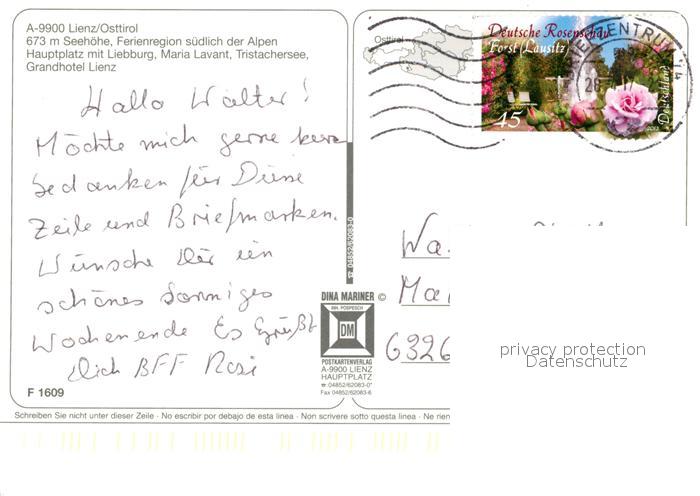 A-9900 Lienz/Osttirol
673 m Seehöhe, Ferienregion südlich der Alpen
Hauptplatz mit Liebburg, Maria Lavant, Tristachersee,
Grandhotel Lienz
Hallo Walter!
Möchte mich gerne
bedanken für Diene
Zeile und Briefmarken.
Wünsche Dir ein
schönes Sonniges
Wochenende Es Grüßt
Dich BFF Rosi
F 1609
Osttirol
Deutsche Rosenschau
Forst (Lausitz)
45
Deutschland
2013
ZENTRUM
04852/62083-0
DINA MARINER ©
INH. POSPESCH
DM
POSTKARTENVERLAG
A-9900 LIENZ
HAUPTPLATZ
☎ 04852/62083-0*
Fax 04852/62083-6
Wa
Ma
6326
privacy protection
Datenschutz
Schreiben Sie nicht unter dieser Zeile · No escribir por debajo de esta linea · Non scrivere sotto questa linea · Ne rien